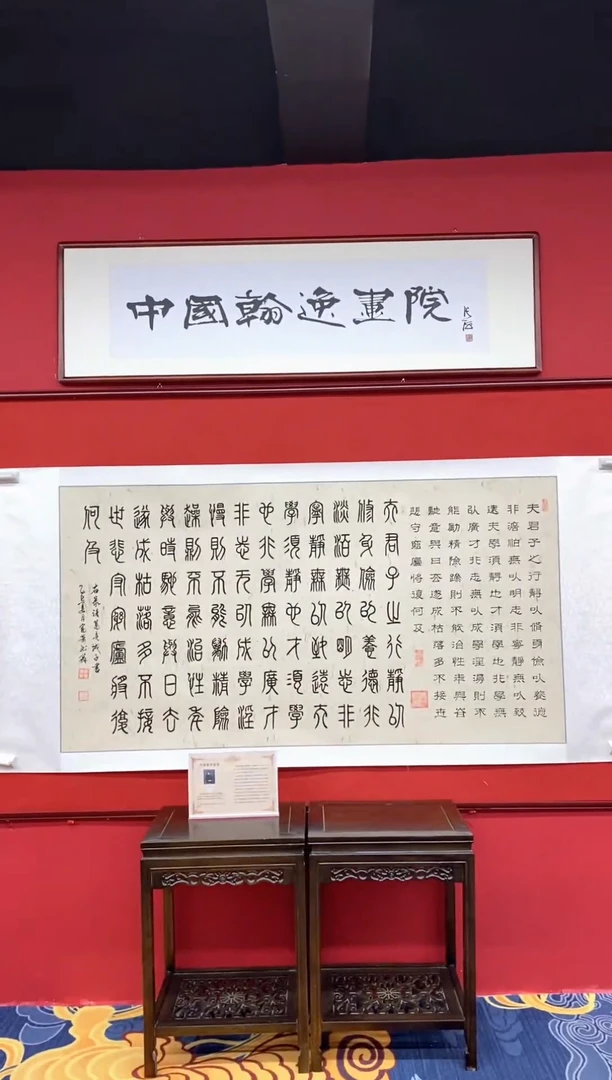 中國翰逸畫院
夫君子之行靜以脩身儉以養德
非澹怕無以明志非寧靜無以致
遠夫學須靜也才須學也非學無
以廣才非志無以成學淫漫則不
能勵精險躁則不能治性年與旹
馳意與日去遂成枯落多不接世
悲守窮廬將復何及
夫君子之行靜以
修身儉以養德非
淡泊無以明志非
寧靜無以致遠夫
學須靜也才須學
也非學無以廣才
非志无以成學淫
慢則不能勵精險
躁則不能治性年
與時馳意與日去
遂成枯落多不接
世悲守窮廬將復
何及
右录諸葛亮诫子書
乙巳夏月